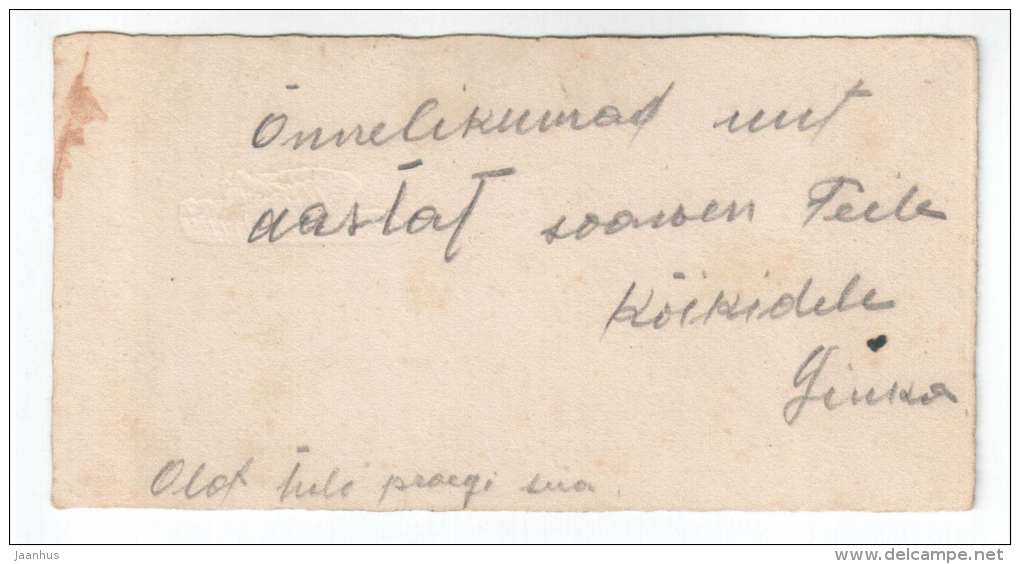 Õnnelikumad uut
aastat soowen Teile
Kõikidele
Olof tuli praegi siia
Jaanhus
www.delcampe.net